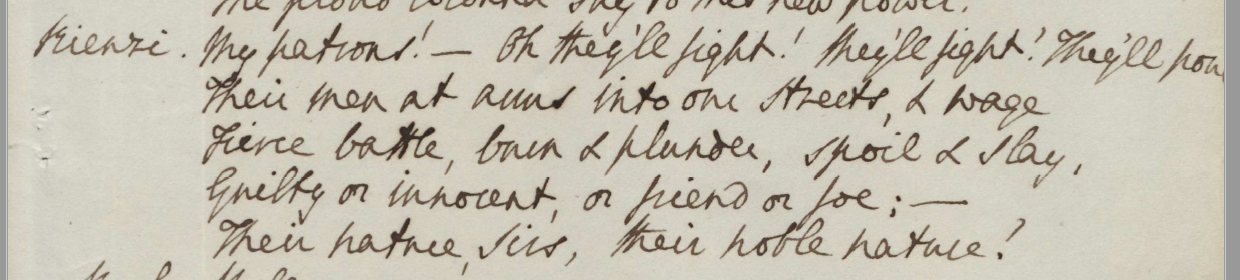 the proud Colonna say to this new power?
Rienzi. My patrons! — Oh they'll fight! They'll fight! They'll pour
Their men at arms into our streets, & wage
Fierce battle, burn & plunder, spoil & slay,
Guilty or innocent, or friend or foe; —
Their nature, sirs, their noble nature!